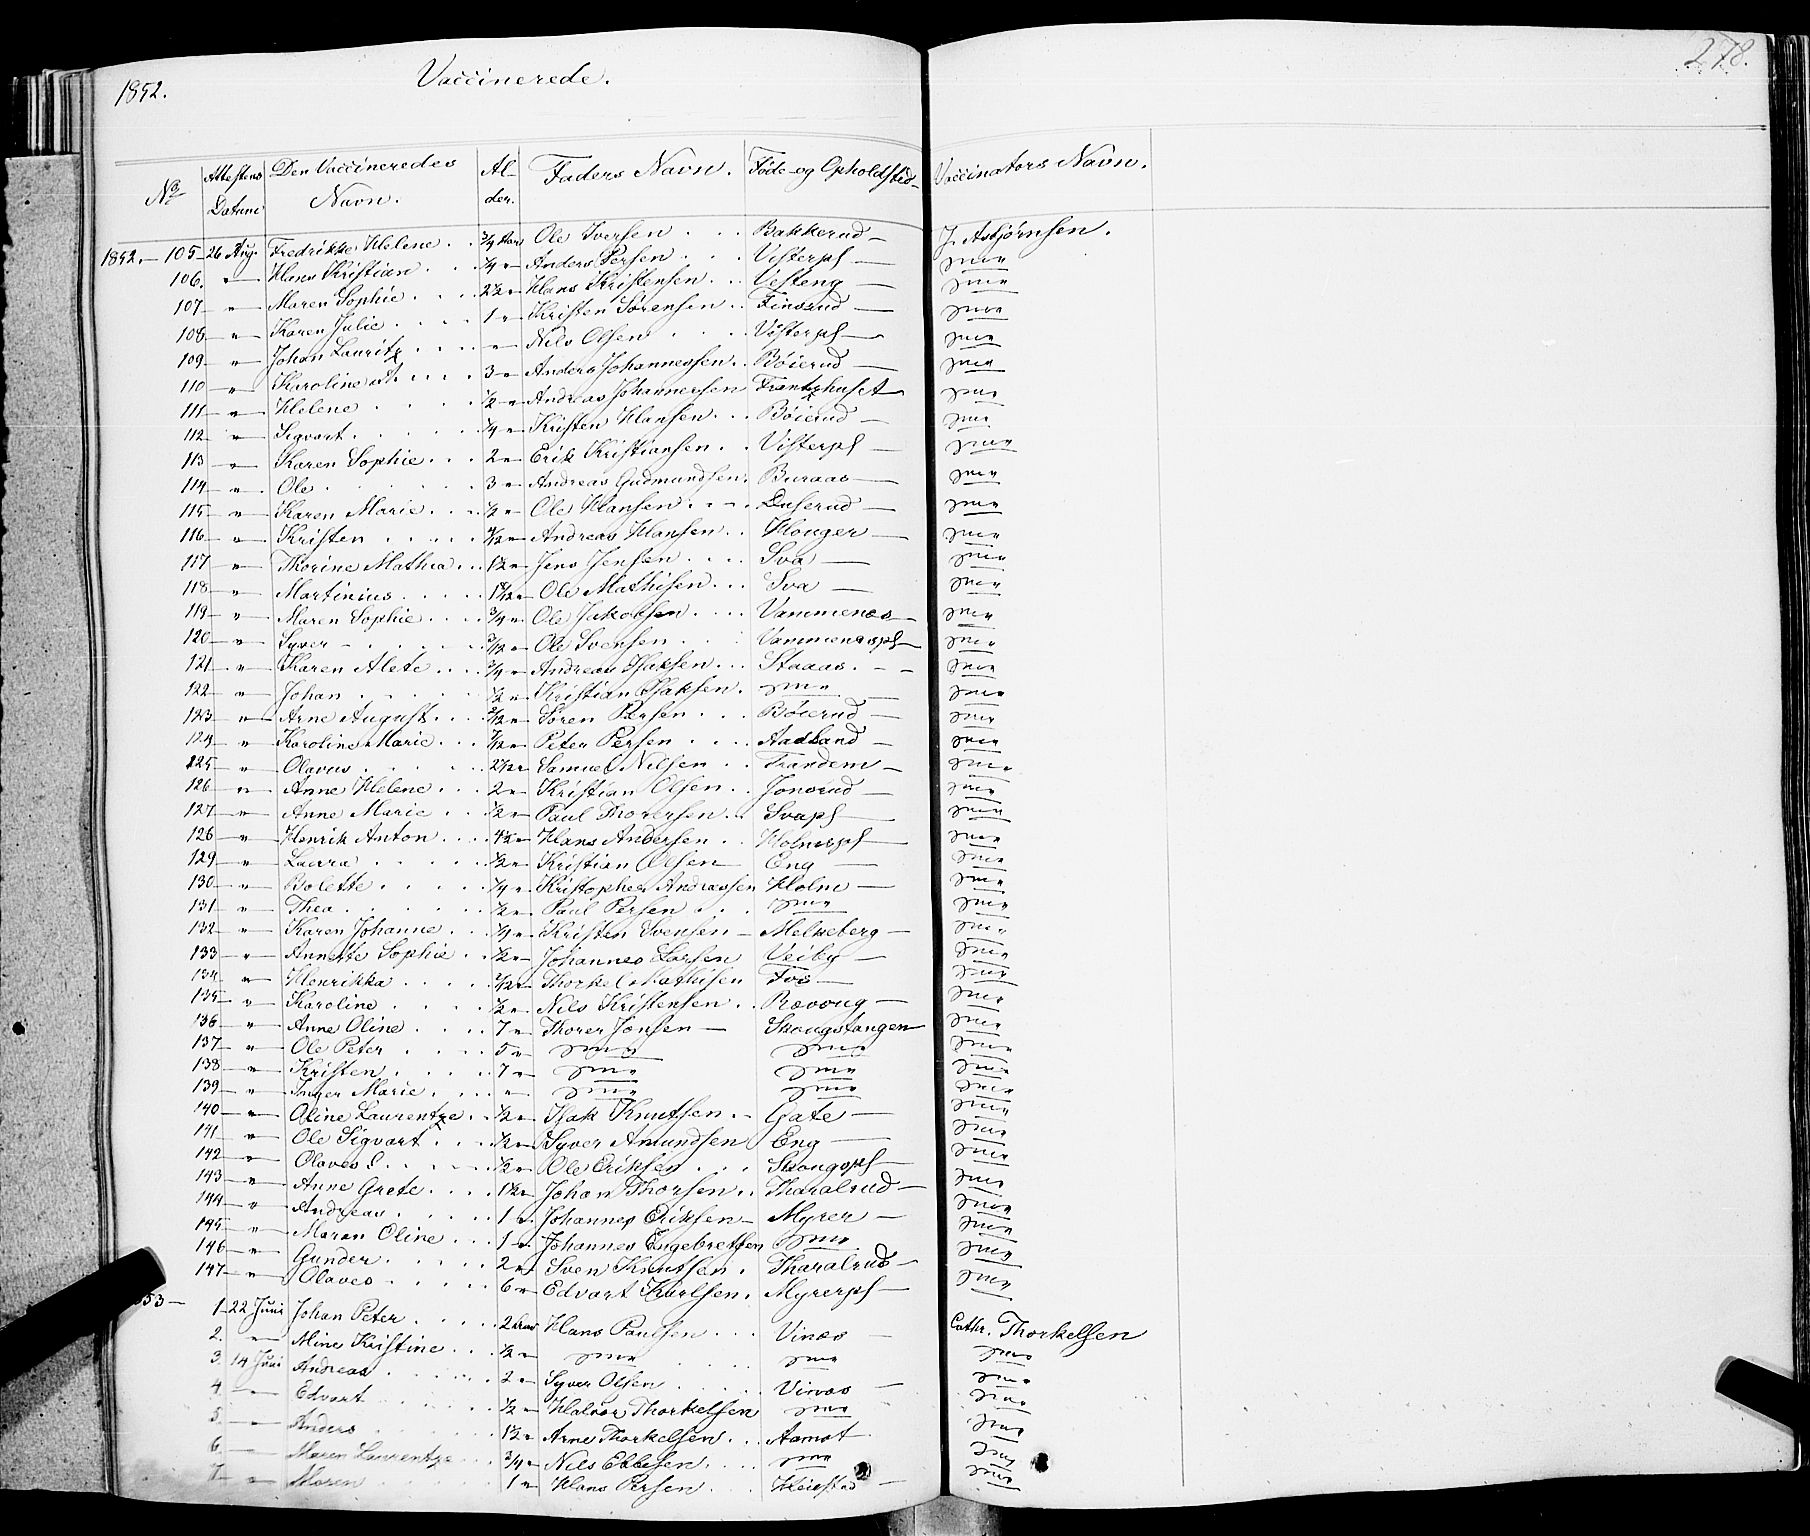 1852. Vaccinerede. 278.
No Attestens Datum Den Vaccineredes Navn. Alder. Faders Navn. Føde- og Opholdsted Vaccinators Navn.
1852.— 105— 26 Aug. Fredrikke Helene 3/4 Aar Ole Iversen Bakkerud J. Asbjørnsen.
106. " Hans Kristian 1/4 " Anders Persen Visterpl smes
107 " Maren Sophie 2 1/2 " Hans Kristensen Vesteng smes
108 " Karen Julie 1 " Kristen Sørensen Finsrud smes
109 " Johan Lauritz " Nils Olsen Visterpl smes
110 " Karoline 3 " Anders Johannessen Bøierud smes
111 " Helene 1/2 " Andreas Johannessen Frantzhuset smes
112 " Sigvart 1/4 " Kristen Hansen Bøierud smes
113 " Karen Sophie 2 " Erik Kristiansen Visterpl smes
114 " Ole 3 " Andreas Gudmundsen Buraas smes
115 " Karen Marie 1/2 " Ole Hansen Duserud smes
116 " Kristen Andreas Hansen Houger smes
117 " Thorine Mathea 1 1/2 " Jens Jensen Sva smes
118 " Martinius 1 1/2 " Ole Mathisen Sva smes
119 " Maren Sophie 3/4 " Ole Jakobsen Vammenæs smes
120 " Syver Ole Svensen Vammenæspl smes
121 " Karen Alete 3/4 " Andreas Isaksen Staaas smes
122 " Johan 1/2 " Kristian Isaksen smes smes
123 " Arne August Søren Persen Bøierud smes
124 " Karoline Marie Peter Persen Aadland smes
125 " Olavus 2 1/2 " Samuel Nilsen Trandem smes
126 " Anne Helene 2 " Kristian Olsen Jonsrud smes
127 " Anne Marie 1/2 " Paul Thoresen Svapl smes
126 " Henrik Anton 4 1/2 " Hans Andersen Holmespl smes
129 " Laura 1/2 " Kristian Olsen Eng smes
130 " Bolette 1/4 " Kristopher Andreassen Holm smes
131 " Thea 1/2 " Paul Persen smes smes
132 " Karen Johanne 1/4 " Kristen Svensen Melkeberg smes
133 " Annette Sophie 1/2 " Johannes Larsen Veiby smes
134 " Henrikka Thorkel Mathisen Foss smes
135 " Karoline 1/2 " Nils Kristensen Revoug smes
136 " Anne Oline 7 " Thorer Jonsen Skougstangen smes
137 " Ole Peter 5 " smes smes smes
138 " Kristen 7 " smes smes smes
139 " Inger Marie " smes smes smes
140 " Oline Laurentze 1/2 " Isak Knutsen Gate smes
141 " Ole Sigvart 1/2 " Syver Amundsen Eng smes
142 " Olaves 1/2 " Ole Eriksen Skougspl smes
143 " Anne Grete 1 1/2 " Johan Thorsen Tharalrud smes
144 " Andreas 1 " Johannes Eriksen Myrer smes
145 " Maran Oline 1 " Johannes Engebretsen smes smes
146 " Gunder 2 " Sven Knutsen Tharalrud smes
147 " Olaves 6 " Edvart Karlsen Myrerpl smes
1853— 1 22 Juni Johan Peter 2 Aar Hans Paulsen Vinæs Cathr. Thorkelsen
2. " Mine Kristine 1/2 " smes smes smes
3. 14 Juni Andreas 2 " Syver Olsen Vinæs smes
4 " Edvart 1/2 " Halvor Thorkelsen smes smes
5. " Anders 1 1/2 " Arne Thorkelsen Aamot smes
6. " Maren Laurentze 3/4 " Nils Ebbesen smes smes
7 " Maren 1 " Hans Persen smes